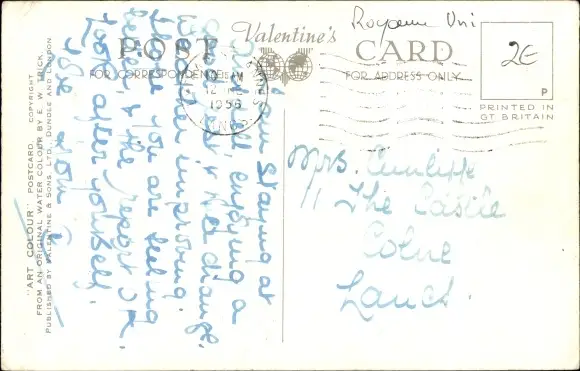 Valentine's
POST CARD
FOR CORRESPONDENCE
FOR ADDRESS ONLY
Royaume Uni
2E
P
PRINTED IN
GT BRITAIN
1956
Am staying at
enjoying a
great rest & change.
Weather improving.
Hope you are feeling
better, & the report O.K.
Look after yourself.
Mrs. Cunliffe
11 The Castle
Colne
Lancs.
"ART COLOUR" POSTCARD. COPYRIGHT
FROM AN ORIGINAL WATER COLOUR BY E. W. TRICK
PUBLISHED BY VALENTINE & SONS, LTD., DUNDEE AND LONDON